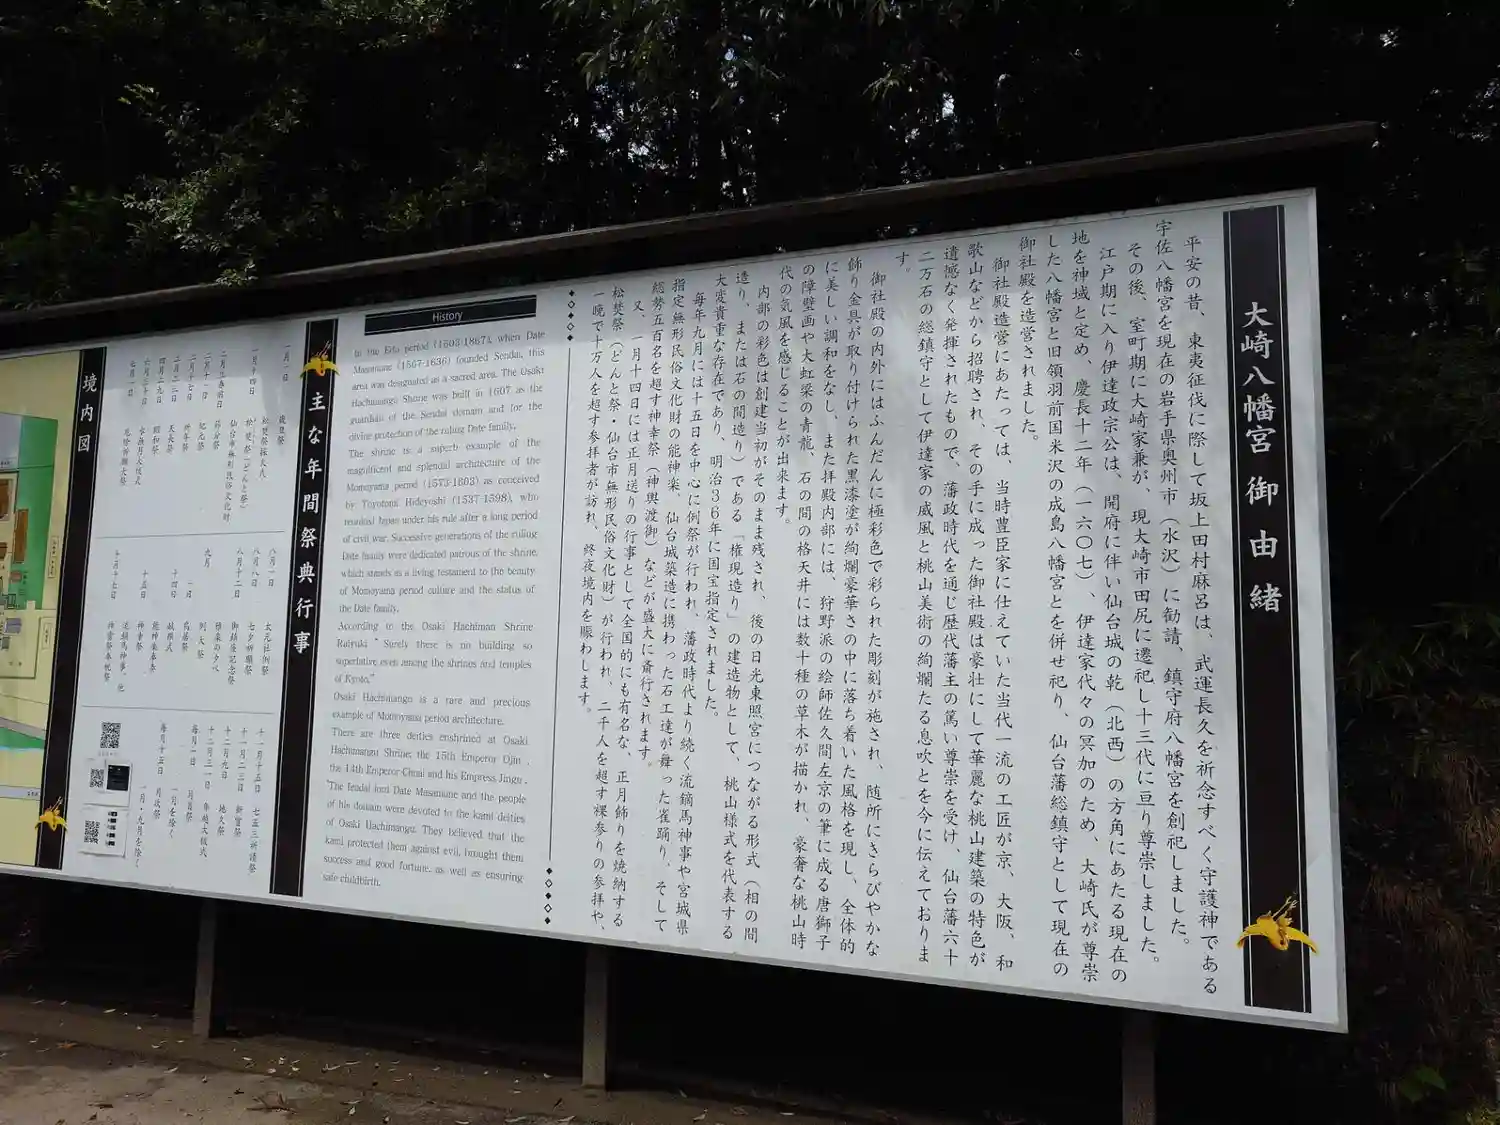 大崎八幡宮 御由緒
平安の昔、東夷征伐に際して坂上田村麻呂は、武運長久を祈念すべく守護神である
宇佐八幡宮を現在の岩手県奥州市（水沢）に勧請、鎮守府八幡宮を創祀しました。
その後、室町期に大崎家兼が、現大崎市田尻に遷祀し十三代に亘り尊崇しました。
江戸期に入り伊達政宗公は、開府に伴い仙台城の乾（北西）の方角にあたる現在の
地を神域と定め、慶長十二年（一六〇七）、伊達家代々の冥加のため、大崎氏が尊崇
した八幡宮と旧領羽前国米沢の成島八幡宮とを併せ祀り、仙台藩総鎮守として現在の
御社殿を造営されました。
御社殿造営にあたっては、当時豊臣家に仕えていた当代一流の工匠が京、大阪、和
歌山などから招聘され、その手に成った御社殿は豪壮にして華麗な桃山建築の特色が
遺憾なく発揮されたもので、藩政時代を通じ歴代藩主の篤い尊崇を受け、仙台藩六十
二万石の総鎮守として伊達家の威風と桃山美術の絢爛たる息吹とを今に伝えておりま
す。
御社殿の内外にはふんだんに極彩色で彩られた彫刻が施され、随所にきらびやかな
飾り金具が取り付けられた黒漆塗が絢爛豪華さの中に落ち着いた風格を現し、全体的
に美しい調和をなし、また拝殿内部には、狩野派の絵師佐久間左京の筆に成る唐獅子
の障壁画や大虹梁の青龍、石の間の格天井には数十種の草木が描かれ、豪奢な桃山時
代の気風を感じることが出来ます。
内部の彩色は創建当初がそのまま残され、後の日光東照宮につながる形式（相の間
造り、または石の間造り）である「権現造り」の建造物として、桃山様式を代表する
大変貴重な存在であり、明治36年に国宝指定されました。
毎年九月には十五日を中心に例祭が行われ、藩政時代より続く流鏑馬神事や宮城県
指定無形民俗文化財の能神楽、仙台城築造に携わった石工達が舞った雀踊り、そして
総勢五百名を超す神幸祭（神輿渡御）などが盛大に斎行されます。
又、一月十四日には正月送りの行事として全国的にも有名な、正月飾りを焼納する
松焚祭（どんと祭・仙台市無形民俗文化財）が行われ、二千人を超す裸参りの参拝や、
一晩で十万人を超す参拝者が訪れ、終夜境内を賑わします。
History
In the Edo period (1603-1867), when Date
Masamune (1567-1636) founded Sendai, this
area was designated as a sacred area. The Osaki
Hachimangu Shrine was built in 1607 as the
guardian of the Sendai domain and for the
divine protection of the ruling Date family.
The shrine is a superb example of the
magnificent and splendid architecture of the
Momoyama period (1573-1603) as conceived
by Toyotomi Hideyoshi (1537-1598), who
reunited Japan under his rule after a long period
of civil war. Successive generations of the ruling
Date family were dedicated patrons of the shrine,
which stands as a living testament to the beauty
of Momoyama period culture and the status of
the Date family.
According to the Osaki Hachiman Shrine
Raiyuki " Surely there is no building so
superlative even among the shrines and temples
of Kyoto."
Osaki Hachimangu is a rare and precious
example of Momoyama period architecture.
There are three deities enshrined at Osaki
Hachimangu Shrine, the 15th Emperor Ojin ,
the 14th Emperor Chuai and his Empress Jingu .
The feudal lord Date Masamune and the people
of his domain were devoted to the kami deities
of Osaki Hachimangu. They believed that the
kami protected them against evil, brought them
success and good fortune, as well as ensuring
safe childbirth.
主な年間祭典行事
一月一日 歳旦祭
一月十四日 松焚祭採火式
松焚祭（どんと祭）
仙台市無形民俗文化財
二月三日 節分祭
二月十一日 紀元祭
祈年祭
天長祭
昭和祭
六月三十日
八月一日 太元社例祭
八月八日 七夕祈願祭
八月十二日 御鎮座記念祭
九月
一日
十四日 能神楽奉奏
十五日 神幸祭
十一月十五日 七五三祈請祭
十一月二三日 新嘗祭
十二月九日
十二月三一日 年越大祓式
毎月一日 月首祭
一月を除く
毎月十五日 月次祭
一月・九月を除く
境内図